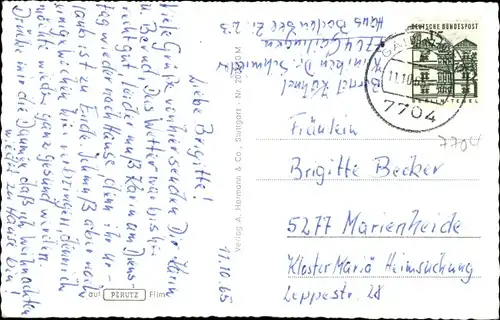 11.10.65
Liebe Brigitte!
Viele Grüße von hier senden Dir Karin
u. Bernd. Das Wetter war bis hier
recht gut, leider muß Karin am Diens-
tag wieder nach Hause, denn ihr Ur-
laub ist zu Ende. Ich muß aber noch
einige Wochen hier verbringen, denn ich
möchte wieder ganz gesund werden.
Drücke mir die Daumen, daß ich Weihnachten
wieder zu Hause bin
Verlag A. Hermann & Co., Stuttgart - Nr.
auf PERUTZ Film
Bernd Kühnel
Dr. Schmieder
7704 Gailingen
Haus Bodensee Zi. 23
DEUTSCHE BUNDESPOST
15
BERLIN-TEGEL
11.10.65
7704
7704
Fräulein
Brigitte Becker
5277 Marienheide
Kloster Mariä Heimsuchung
Leppestr. 28